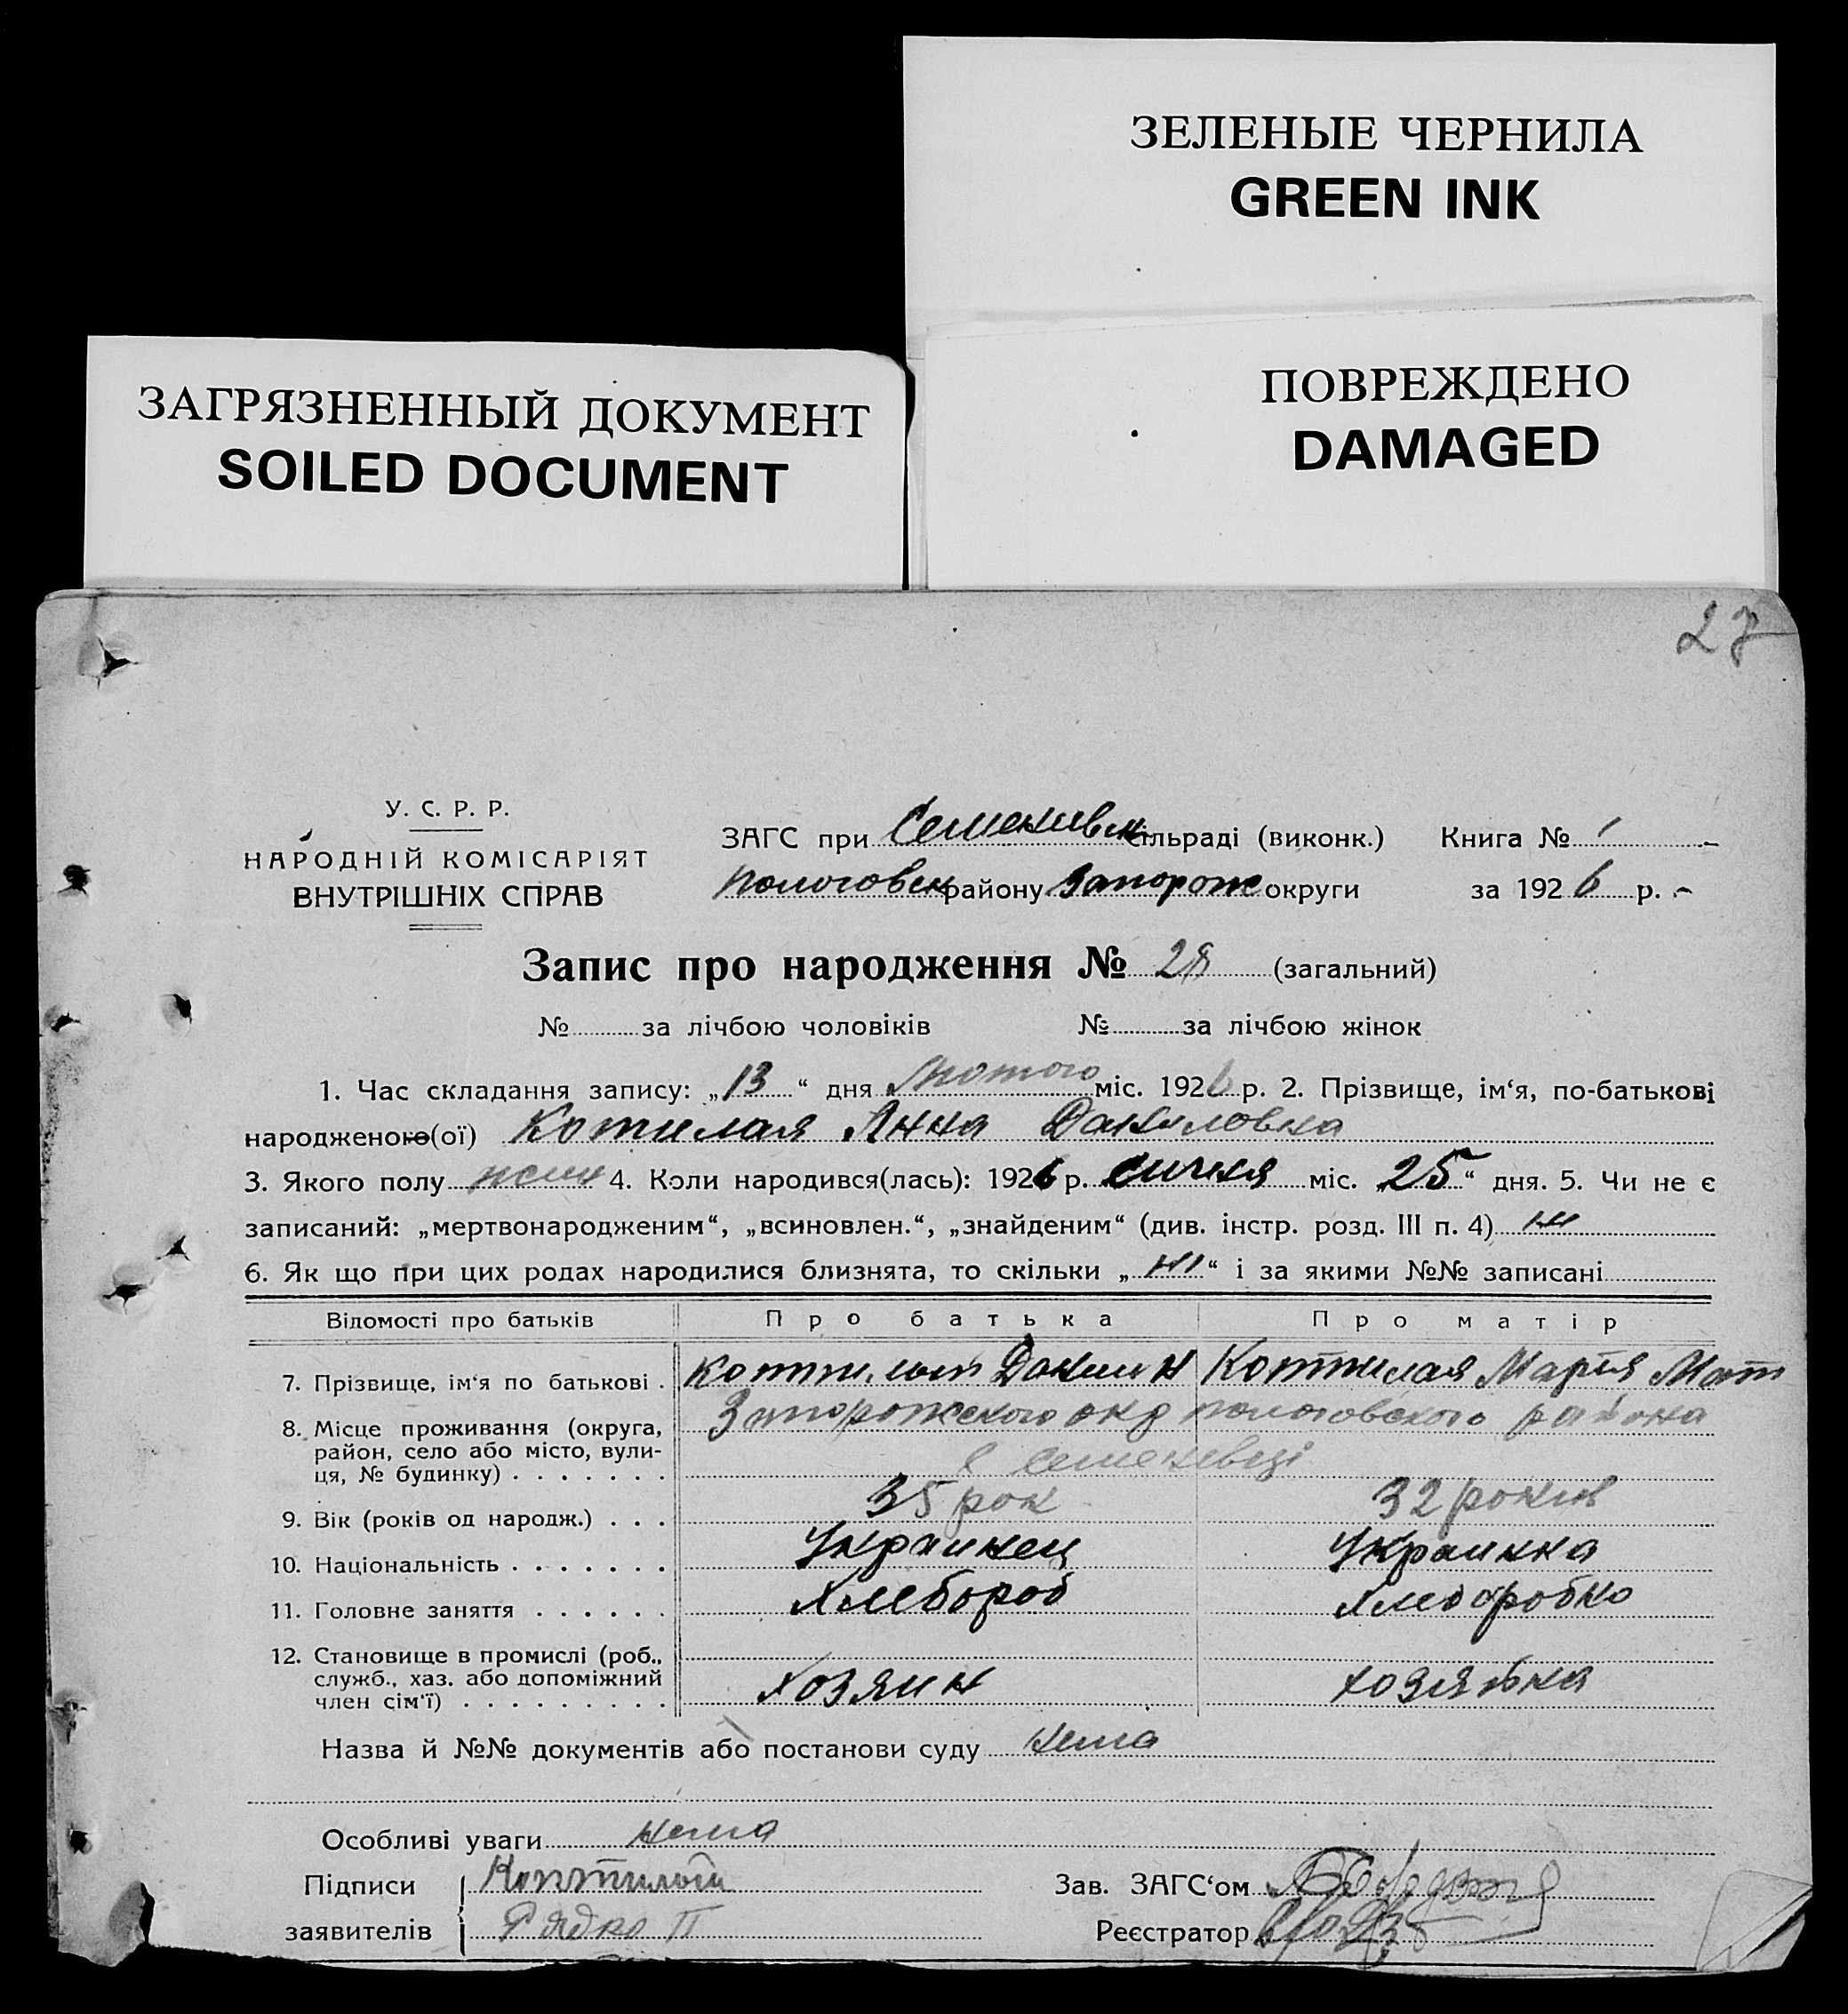 ЗЕЛЕНЫЕ ЧЕРНИЛА
GREEN INK
ПОВРЕЖДЕНО
DAMAGED
ЗАГРЯЗНЕННЫЙ ДОКУМЕНТ
SOILED DOCUMENT
27
У. С. Р. Р.
НАРОДНІЙ КОМІСАРІЯТ
ВНУТРІШНІХ СПРАВ
ЗАГС при Семенивск сільраді (виконк.) Книга № 1
Пологовск району Запорож округи за 1926 р.
Запис про народження № (загальний)
№ за лічбою чоловіків № за лічбою жінок
1. Час складання запису: „13“ дня Лютого міс. 1926 р. 2. Прізвище, ім‘я, по-батькові
народженого(ої) Котилая Анна Даниловна
3. Якого полу жин 4. Коли народився(лась): 1926 р. сичня міс. „25“ дня. 5. Чи не є
записаний: „мертвонародженим“, „всиновлен.“, „знайденим“ (див. інстр. розд. III п. 4) ни
6. Як що при цих родах народилися близнята, то скільки „ни“ і за якими №№ записані
Відомості про батьків Про батька Про матір
7. Прізвище, ім‘я по батькові . Данил Н Коттилая Мария Мат
8. Місце проживання (округа, район, село або місто, вулиця, № будинку) . . . . . . . Запорожского окр пологовского района
с Семенивці
9. Вік (років од народж.) . . . 35 рок 32 рокив
10. Національність . . . . . . . Украинец Украинка
11. Головне заняття . . . . . . Хлебороб хлеборобка
12. Становище в промислі (роб., служб., хаз. або допоміжний член сім‘ї) . . . . . . . . . Хозяин хозяйка
Назва й №№ документів або постанови суду нема
Особливі уваги нема
Підписи Коттилой Зав. ЗАГС‘ом
заявителів Рядко П Реєстратор